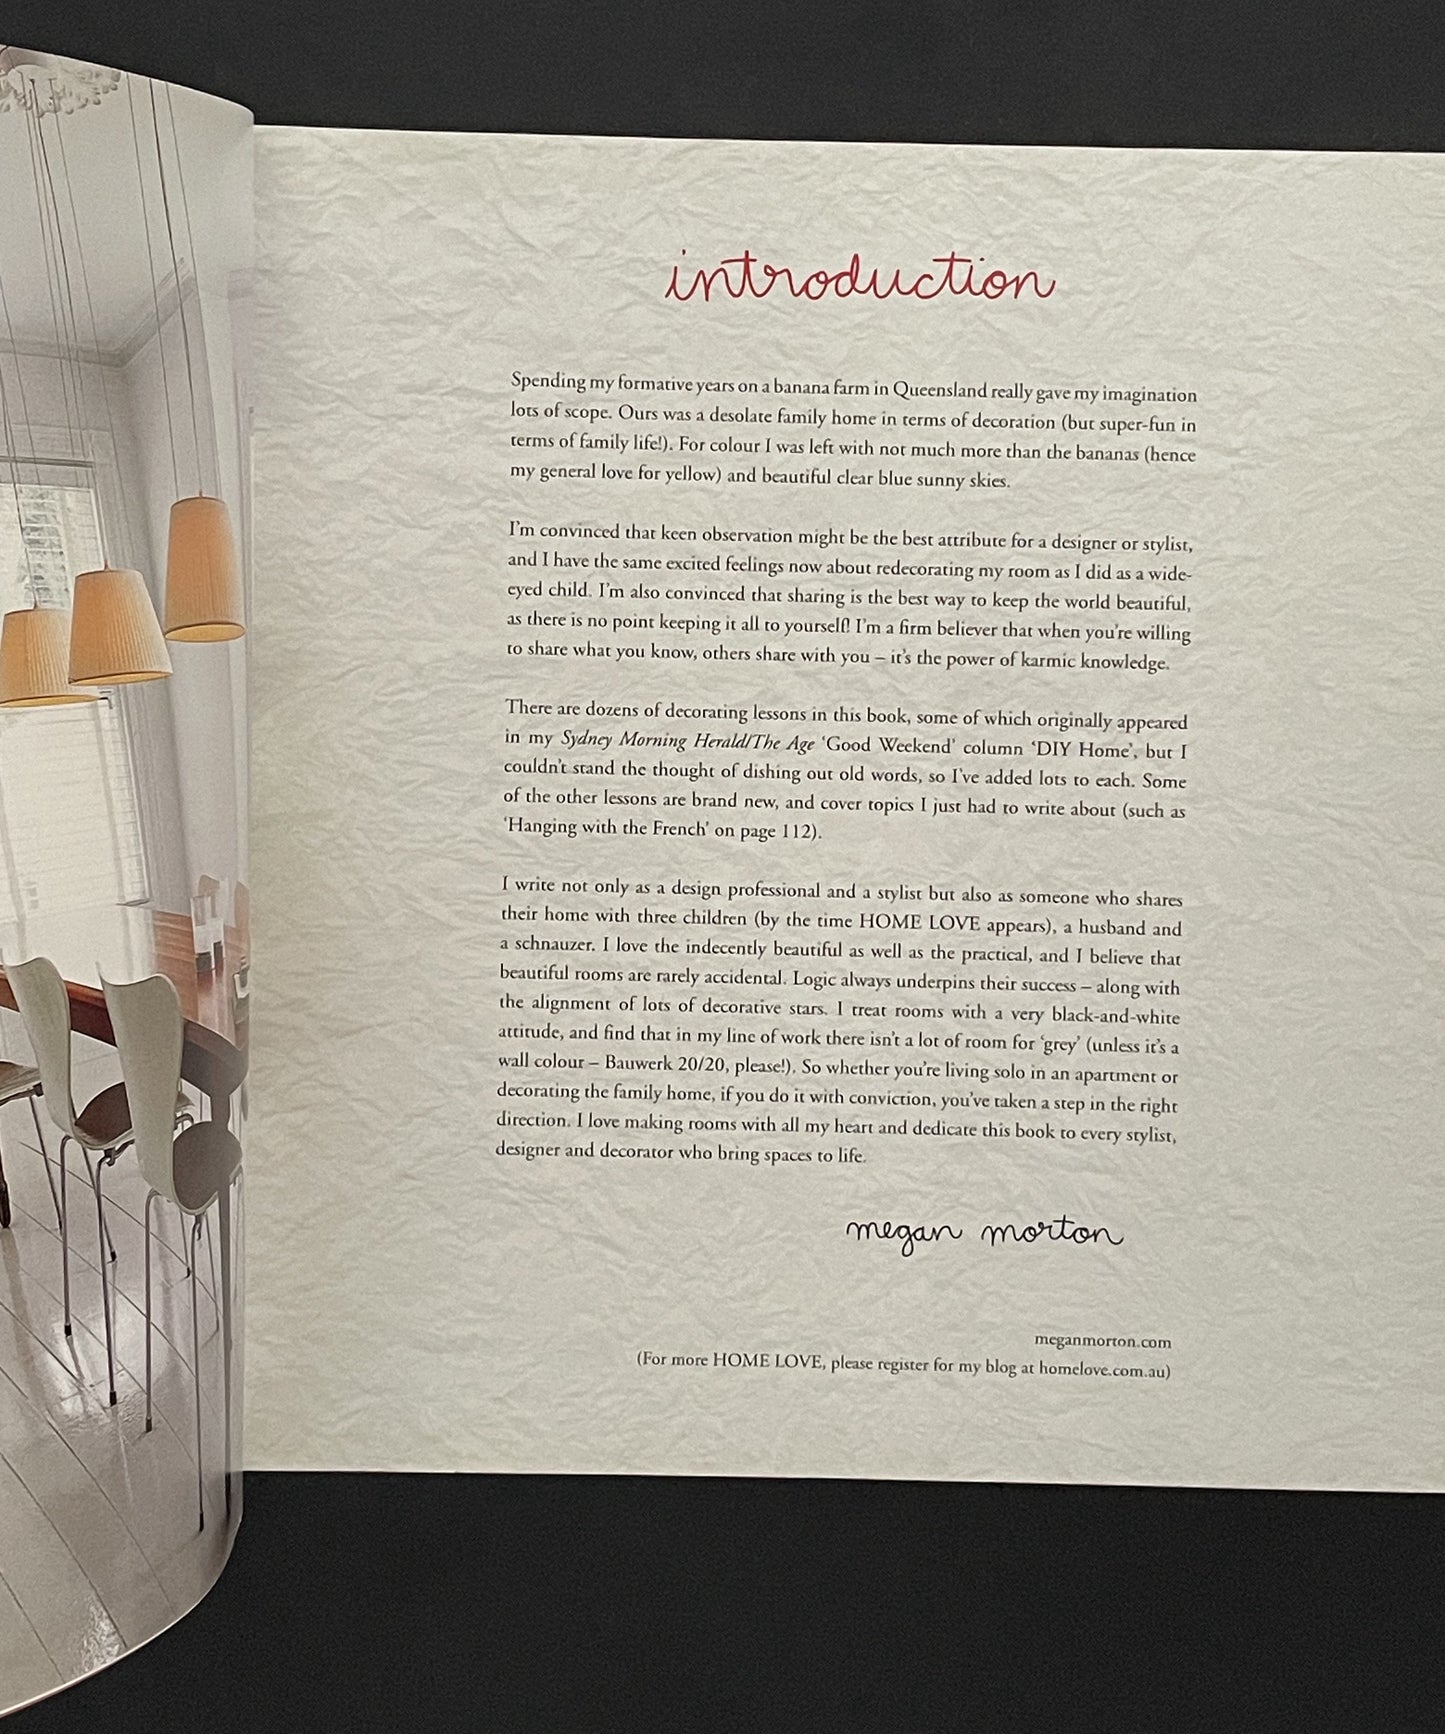 introduction
Spending my formative years on a banana farm in Queensland really gave my imagination
lots of scope. Ours was a desolate family home in terms of decoration (but super-fun in
terms of family life!). For colour I was left with not much more than the bananas (hence
my general love for yellow) and beautiful clear blue sunny skies.
I'm convinced that keen observation might be the best attribute for a designer or stylist,
and I have the same excited feelings now about redecorating my room as I did as a wide-
eyed child. I'm also convinced that sharing is the best way to keep the world beautiful,
as there is no point keeping it all to yourself! I'm a firm believer that when you're willing
to share what you know, others share with you – it's the power of karmic knowledge.
There are dozens of decorating lessons in this book, some of which originally appeared
in my Sydney Morning Herald/The Age 'Good Weekend' column 'DIY Home', but I
couldn't stand the thought of dishing out old words, so I've added lots to each. Some
of the other lessons are brand new, and cover topics I just had to write about (such as
'Hanging with the French' on page 112).
I write not only as a design professional and a stylist but also as someone who shares
their home with three children (by the time HOME LOVE appears), a husband and
a schnauzer. I love the indecently beautiful as well as the practical, and I believe that
beautiful rooms are rarely accidental. Logic always underpins their success – along with
the alignment of lots of decorative stars. I treat rooms with a very black-and-white
attitude, and find that in my line of work there isn't a lot of room for 'grey' (unless it's a
wall colour – Bauwerk 20/20, please!). So whether you're living solo in an apartment or
decorating the family home, if you do it with conviction, you've taken a step in the right
direction. I love making rooms with all my heart and dedicate this book to every stylist,
designer and decorator who bring spaces to life.
megan morton
meganmorton.com
(For more HOME LOVE, please register for my blog at homelove.com.au)